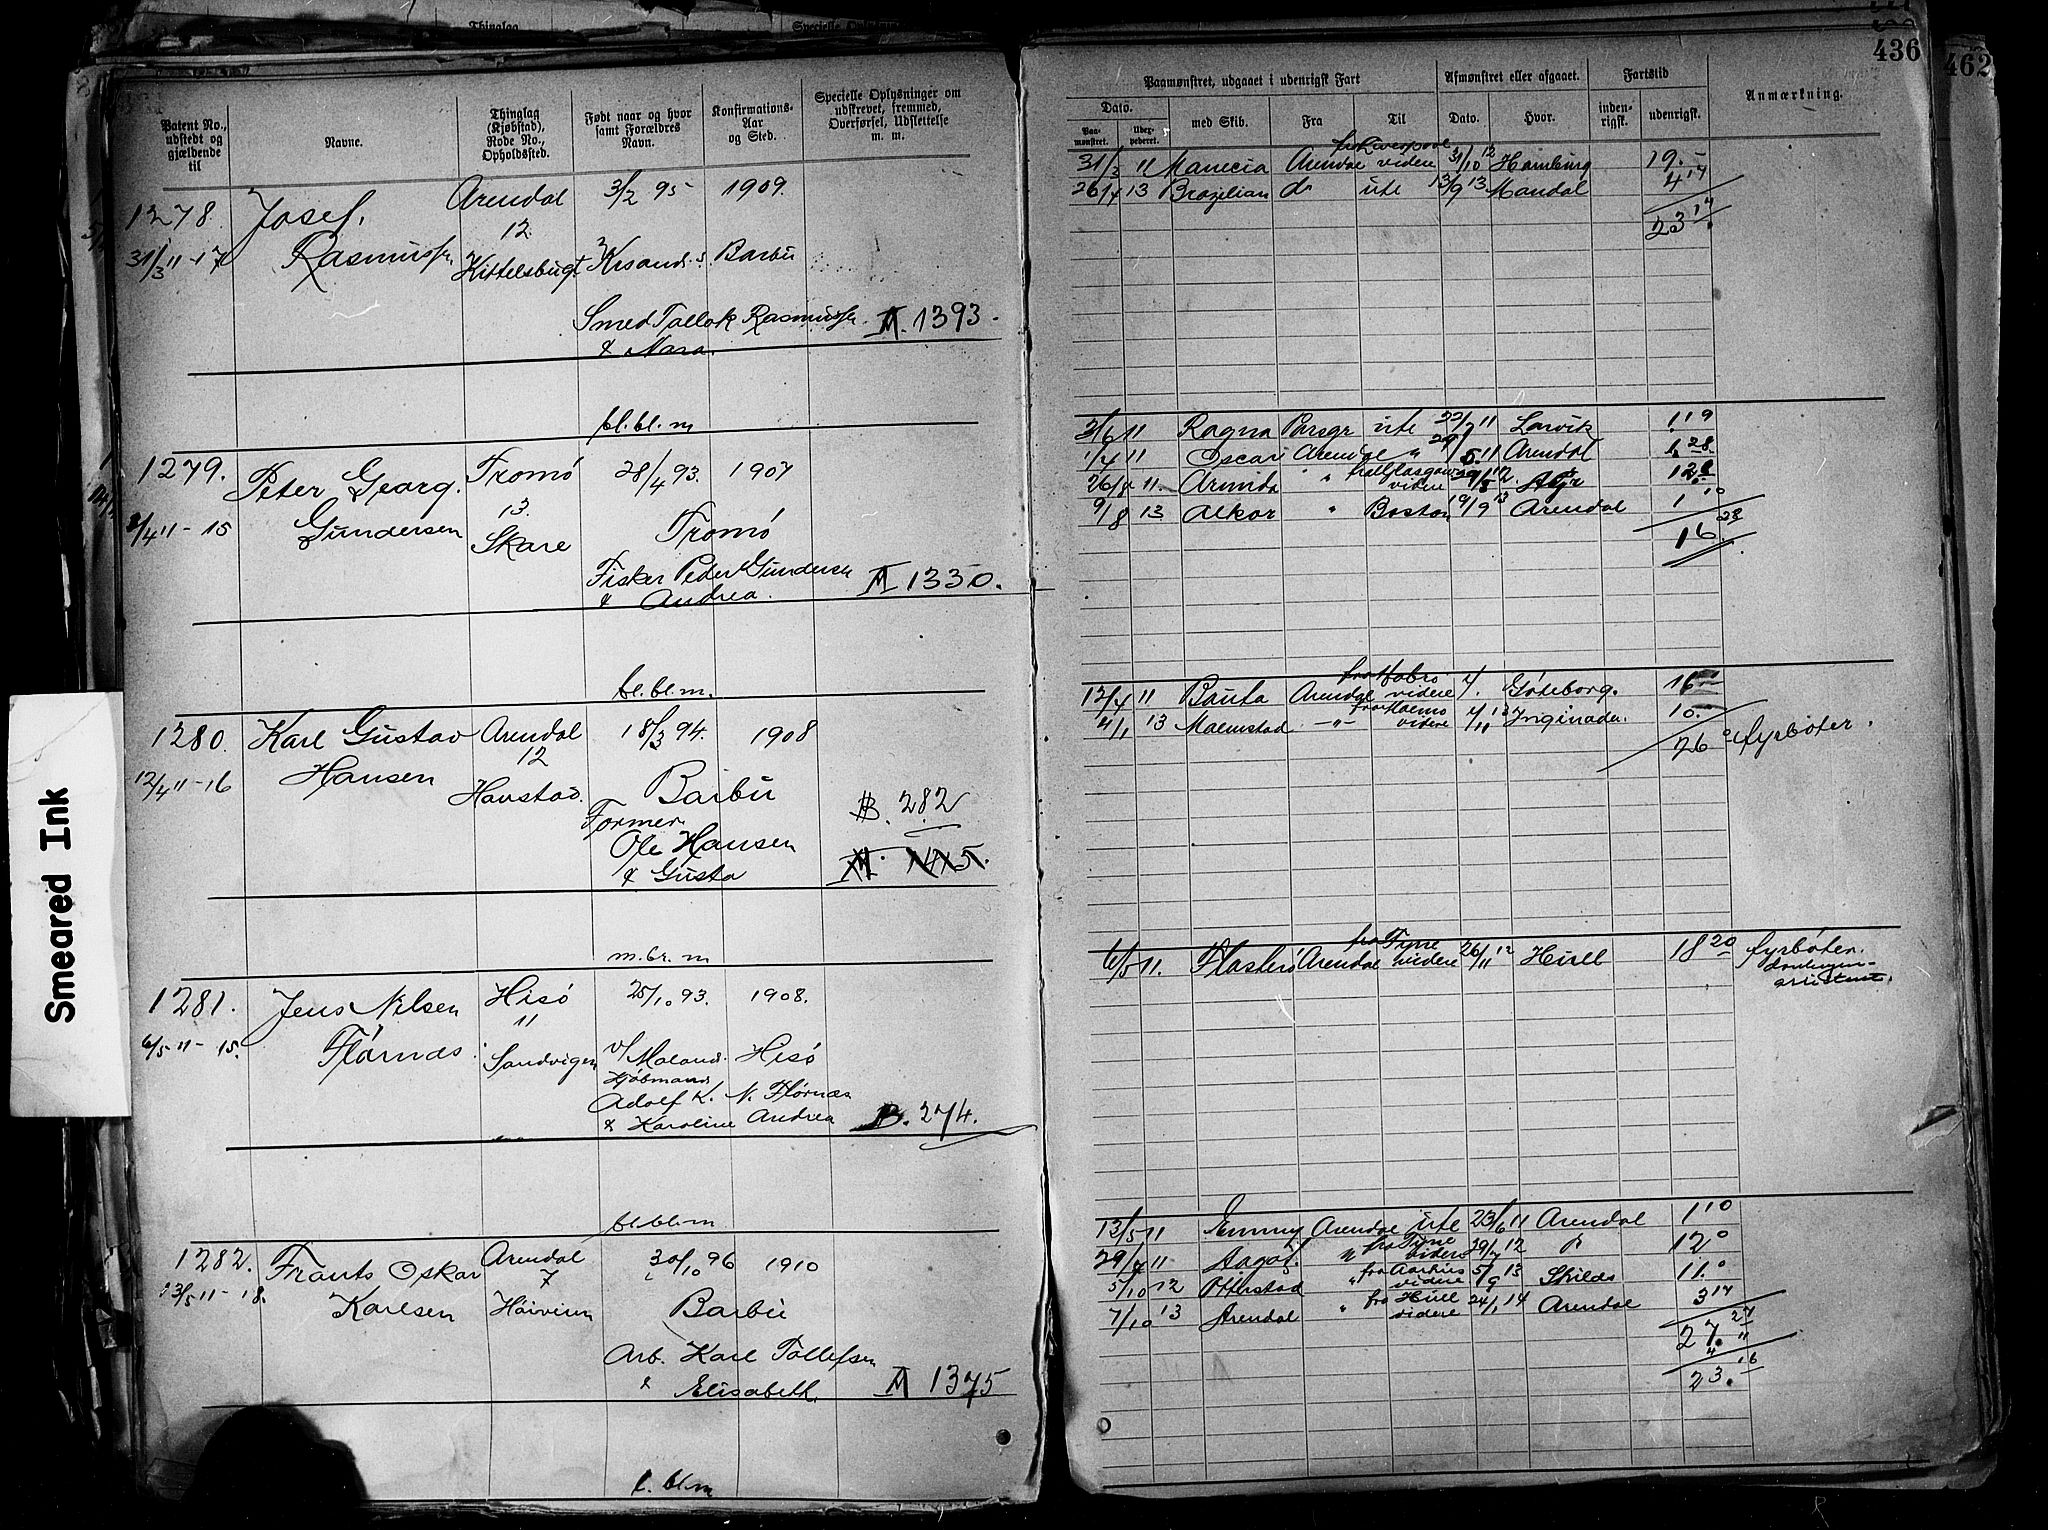 Thinglag
436
462
Patent No., udstedt og gjældende til
Navne.
Thinglag (Kjøbstad), Rode No., Opholdssted.
Født naar og hvor samt Forældres Navn.
Konfirmations-Aar og Sted.
Specielle Oplysninger om udskrevet, fremmed, Overførsel, Udslettelse m. m.
Paamønstret, udgaaet i udenrigsk Fart
Afmønstret eller afgaaet.
Fartstid
Anmærkning.
Dato.
Paa-mønstret.
med Skib.
Fra
Til
Dato.
Hvor.
inden-rigsk.
udenrigsk.
Smeared Ink
1278. Josef. Arendal 3/2 95 1909.
Rasmussen 12.
31/3 11-17 Kittelsbugt Krsand.s. Barbu
Smed Tallak Rasmussen A. 1393.
& Mara.
bl.bl.m
31/3 11 Manecia Arendal fra Liverpool videre 31/10 12 Hamburg 19.-
26/4 13 Brazilian do ute 13/9 13 Mandal 4 17
23 17
1279. Peter Georg Tromø 28/4 93. 1907
Gundersen 13. Tromø
/4 11-15 Skare
Fisker Peder Gundersen A 1330.
& Andrea.
bl.bl.m.
3/6 11 Ragna Porsgr ute 22/7 11 Larvik 1.19
1/4 11 Oscar Arendal " 29/5 11 Arendal 1.28
26/8 11. Arunda " fra Glasgow videre
9/8 13 Alkor " Boston 19/9 13 Arendal 1 10
16. 23
1280. Karl Gustav Arendal 18/3 94. 1908
Hansen 12
12/4 11-16 Havstad. Barbu
Former B. 282
Ole Hansen
& Gusta
m.br.m
12/4 11 Bauta Arendal fra Hobro videre Göteborg. 16
4/1 13 Malmstad -"- fra Malmö videre 4/11 13 10.
26 fyrbøter.
1281. Jens Nilsen Hisø 25/10 93. 1908.
Flørnæs. 11
6/5 11-15. Sandvigen v/ Maland. Hisø
Kjøbmand
Adolf K. N. Flørnæs
& Karoline Andrea B. 274.
bl.bl.m
6/5 11. Flosterö Arendal fra Tyne videre 26/11 12 Hull 18 20 fyrbøter.
donkeyman-
assistent.
1282. Frants Oskar Arendal 30/10 96 1910
Karlsen 7
13/5 11-18. Barbu
Arb. Karl Tollefsen
& Elisabeth. A 1375
bl.m
13/5 11 Emmy Arendal ute 23/6 11 Arendal 1 10
29/7 11 Aagot. " fra Tyne videre 29/7 12 12 0
5/10 12 Otterstad " fra Aarhus videre 5/9 13 Shilds 11.0
7/10 13 Arendal " fra Hull videre 24/1 14 Arendal 3 17
27. 27
4 11
23. 16